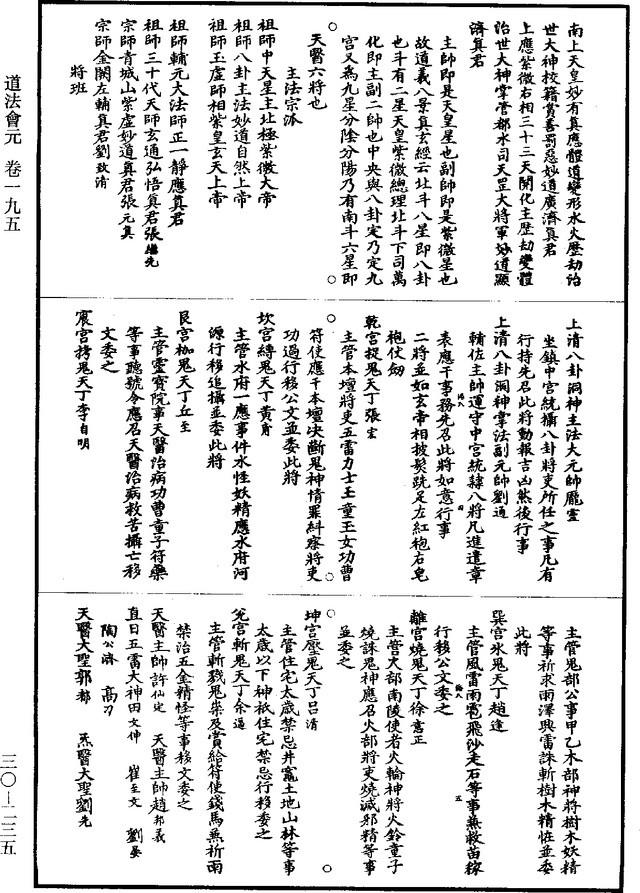 南上天皇妙有真應體道變形水火歷劫治
世大神校籍賞善罰惡妙道廣濟真君
上應紫微右相三十三天開化主歷劫變體
治世大神掌管都水司天罡大將軍妙道顯
濟真君
主師即是天皇星也副師即是紫微星也
故道義八景真玄經云北斗八星即八卦
也斗有二星天皇紫微總理北斗下司萬
化即主副二帥也中央與八卦定乃定九
宮又為九星分陰分陽乃有南斗六星即
天醫六將也
主法宗派
祖師中天星主北極紫微大帝
祖師八卦主法妙道自然上帝
祖師玉虛師相紫皇玄天上帝
祖師輔元大法師正一靜應真君
祖師三十代天師玄通弘悟真君張繼先
宗師青城山紫虛妙道真君張元真
宗師金闕左輔真君劉致清
將班
上清八卦洞神主法大元帥龐靈
坐鎮中宮統攝八卦將吏所任之事凡有
行持先召此將動報吉凶然後行事
上清八卦洞神掌法副元帥劉通
輔佐主帥運守中宮統隸八將凡進遣章
表應干事務先召此將如意行事
二將並如玄帝相披髮跣足左紅袍右皂
袍仗劍
乾宮捉鬼天丁張宏
主管本壇將吏五雷力士玉童玉女功曹
符使應干本壇決斷鬼神情罪糾察將吏
功過行移公文並委此將
坎宮縛鬼天丁黃育
主管水府一應事件水性妖精應水府河
源行移追攝並委此將
艮宮枷鬼天丁丘至
主管靈寶院事天醫治病功曹童子符藥
等事聽號令應召天醫治病救苦攝亡移
文委之
震宮拷鬼天丁李自明
主管鬼部公事甲乙木部神將樹木妖精
等事祈求雨澤興雷誅斬樹木精恠並委
此將
巽宮氷鬼天丁趙達
主管風雷雨雹飛沙走石等事兼救苗稼
行移公文委之
離宮燒鬼天丁徐憲正
主管火部南陵使者火輪神將火鈴童子
燒誅鬼神應召火部將吏燒滅邪精等事
並委之
坤宮壓鬼天丁呂清
主管住宅太歲禁忌井竈土地山林等事
太歲以下神祇住宅禁忌行移委之
兌宮斬鬼天丁余通
主管斬戮鬼祟及賞給符使錢馬兼祈雨
禁治五金精怪等事移文委之
天醫主師許仙定 天醫主師趙邦義
直日五雷大神田文仲 崔至文 劉晏
陶公濟 高刃
天醫大聖郭都 炁醫大聖劉先
道法會元 卷一九五
三〇—二三五